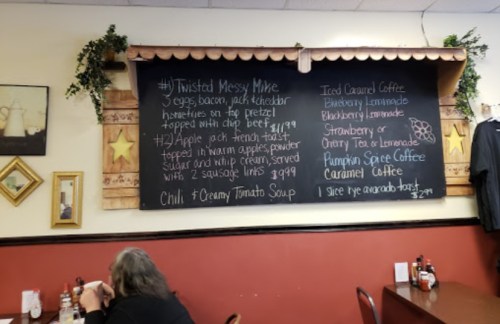 #1) Twisted Messy Mike
3 eggs, bacon, jack & cheddar
homefries on top pretzel
topped with chip beef $11.99
#2) Apple Jack french toast
topped in warm apples, powder
sugar and whip cream, served
with 2 sausage links $9.99
Chili & Creamy Tomato Soup
Iced Caramel Coffee
Blueberry Lemonade
Blackberry Lemonade
Strawberry or
Cherry Tea or Lemonade
Pumpkin Spice Coffee
Caramel Coffee
1 slice rye avacado toast
$2.99